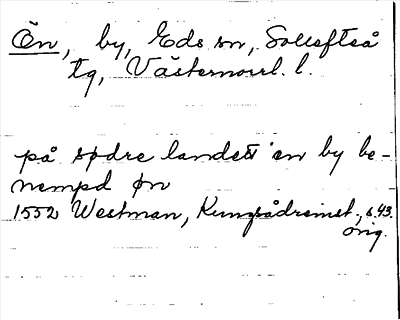 Ön, by, Eds sn, Sollefteå
tg, Västernorrl. l.
på sødre landett en by be-
nempd øn
1552 Westman, Kungsådreinst., s. 43.
orig.